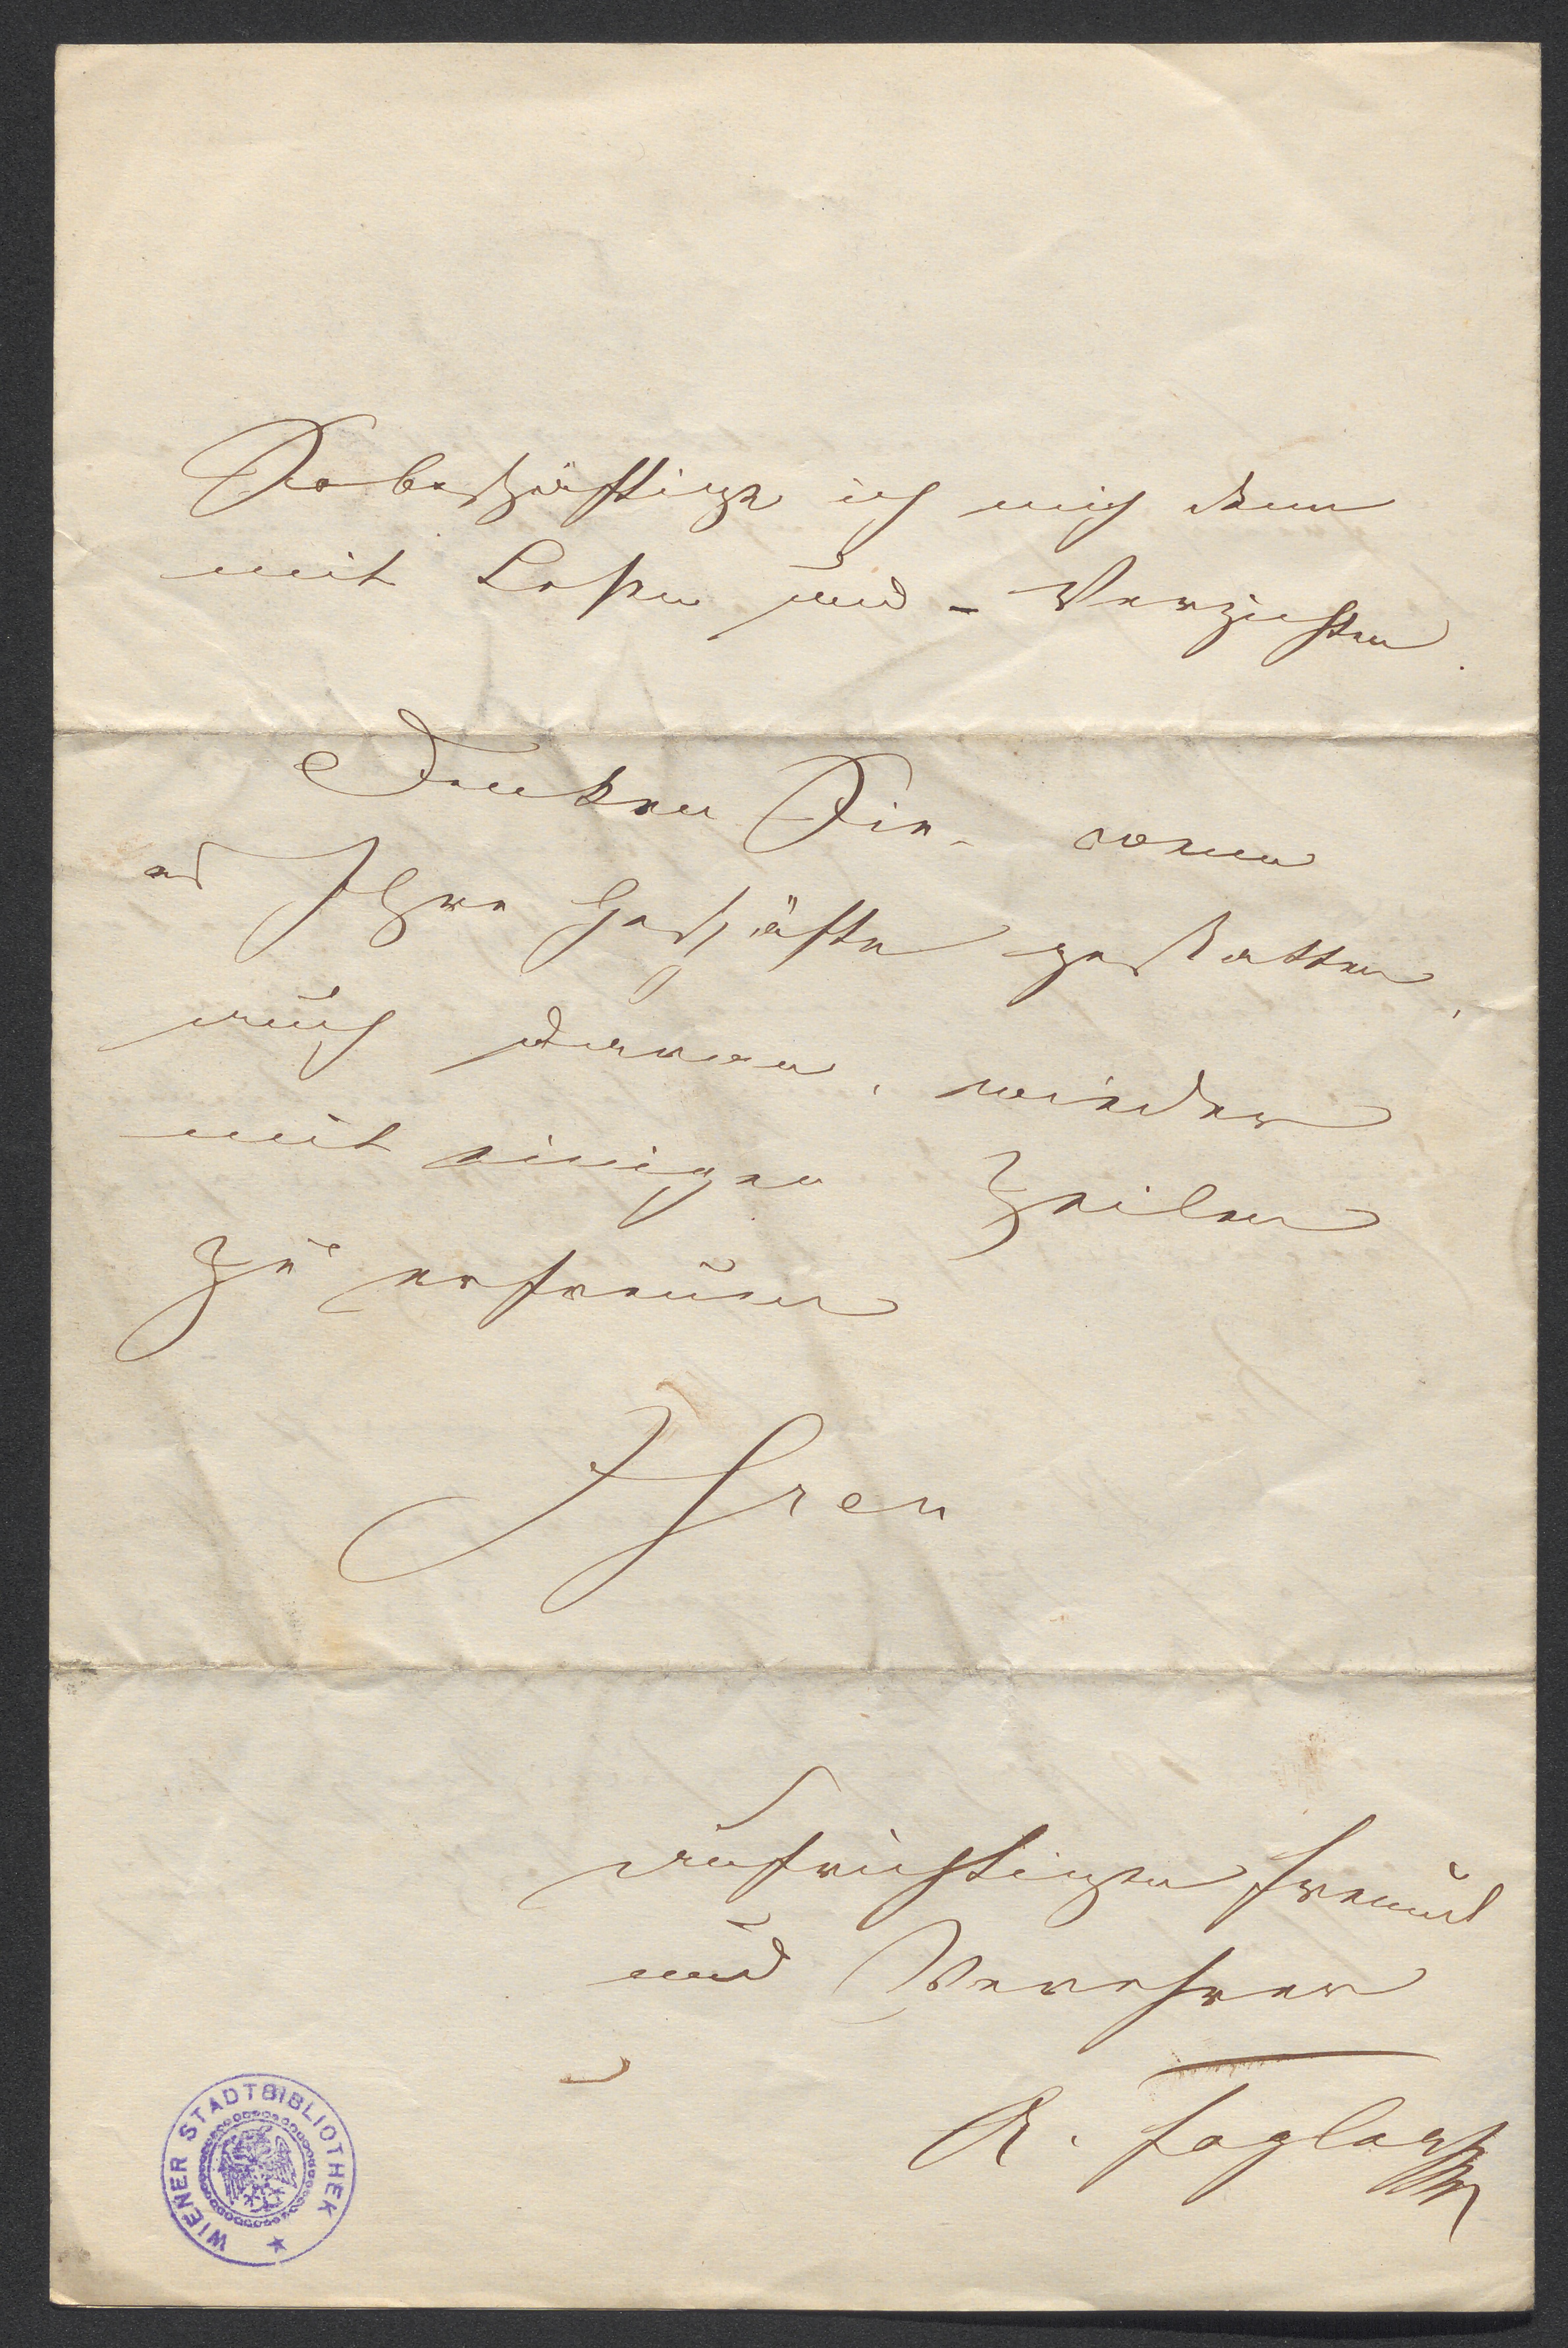 So beschäftige ich mich denn
mit Lesen und - Verzichten.
Denken Sie, wenn
es Ihre Geschäfte gestatten,
auch daran, wieder
mit einigen Zeilen
zu erfreuen
Ihren
aufrichtigen Freund
und Verehrer
WIENER STADTBIBLIOTHEK